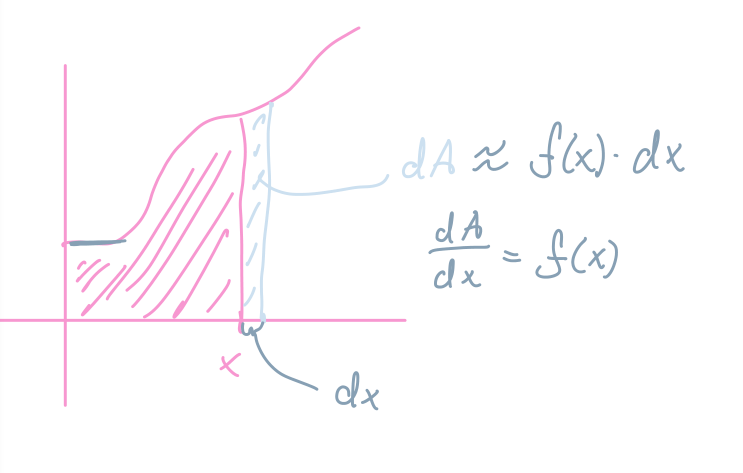 dA ≈ f(x) · dx
dA/dx = f(x)
x
dx